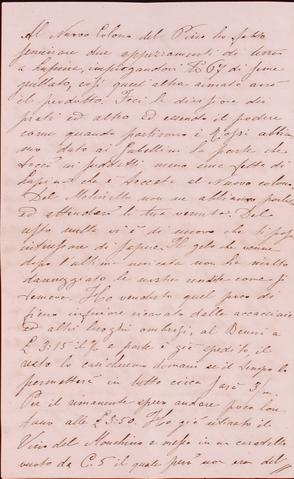 Al Nuovo Colono del Pino ho fatto
seminare due appezzamenti di terra
a Lupinia, impiegandovi K 67 di seme
gullato, così quest'altra annata avrà
il prodotto. Feci la divisione dei
prati ed altro ed essendo il podere
come quando partirono i Rossi abbia-
mo dato ai Gabellini la parte che
toccò ai predetti meno una fetta di
Lupinia che è toccata al Nuovo colono.
Del Molinello non ne abbiamo parlato
ed attenderò la tua venuta. Del
resto nulla vi è di nuovo che ti possa
interessare di sapere. Il gelo che venne
dopo l'ultima nevicata non ha molto
danneggiato le nostre vendite come si
temeva. Ho venduto quel poco di
fieno inferiore ricavato dalle accacciaie
ed altri luoghi ombrosi, al Bensi a
£ 3.15 il % e parte è già spedito, il
resto lo caricheremo domani se il tempo lo
permetterà in tutto circa
Per il rimanente spero andare poco lon-
tano alle £ 3.50. Ho già ritirato il
Vino del Monchino e messo in un caratello
vuoto da C. 5 il quale però non era del